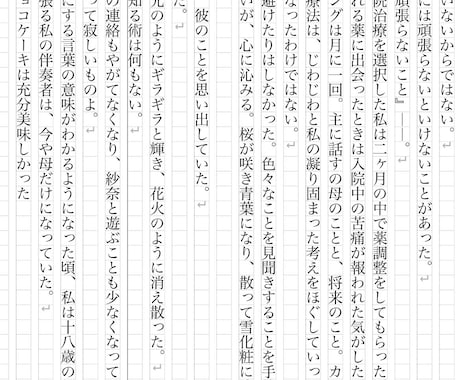 ないからではない。
には頑張らないといけないことがあった。
頑張らないこと』――。
院治療を選択した私は二ヶ月の中で薬調整をしてもらった
れる薬に出会ったときは入院中の苦痛が報われた気がした
ングは月に一回。主に話すの母のことと、将来のこと。カ
療法は、じわじわと私の凝り固まった考えをほぐしていっ
なったわけではない。
避けたりはしなかった。色々なことを見聞きすることを手
いが、心に沁みる。桜が咲き青葉になり、散って雪化粧に
彼のことを思い出していた。
た。
光のようにギラギラと輝き、花火のように消え散った。
知る術は何もない。
の連絡もやがてなくなり、紗奈と遊ぶことも少なくなって
って寂しいものよ。
にする言葉の意味がわかるようになった頃、私は十八歳の
張る私の伴奏者は、今や母だけになっていた。
ョコケーキは充分美味しかった